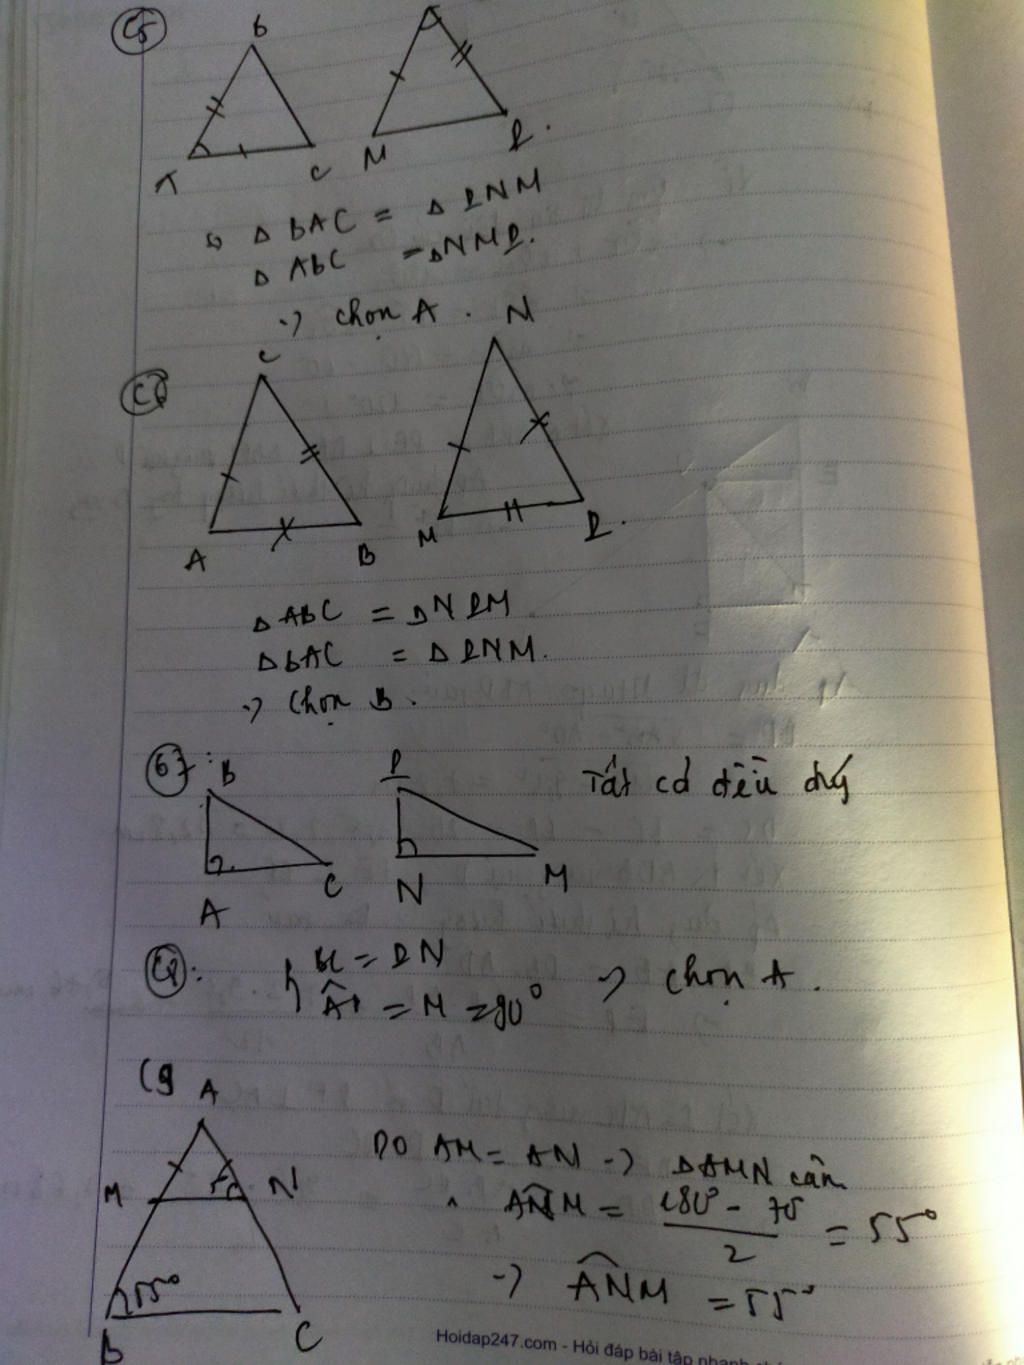 C5
B
A
C
M
P.
Δ BAC = Δ PNM
Δ ABC = Δ NMP.
-> chọn A.
C6
C
N
A
B
M
P.
Δ ABC = Δ NPM
Δ BAC = Δ PNM.
-> Chọn B.
B
P
Tất cả đều đúng
A
C
N
M
C8.
BC = PN
Â = M = 90°
-> chọn A.
C9
A
M
N
B
55°
C
DO AM = AN -> Δ AMN cân
ANM = 180° - 70 / 2 = 55°
-> ANM = 55°
Hoidap247.com - Hỏi đáp bài tập nhanh